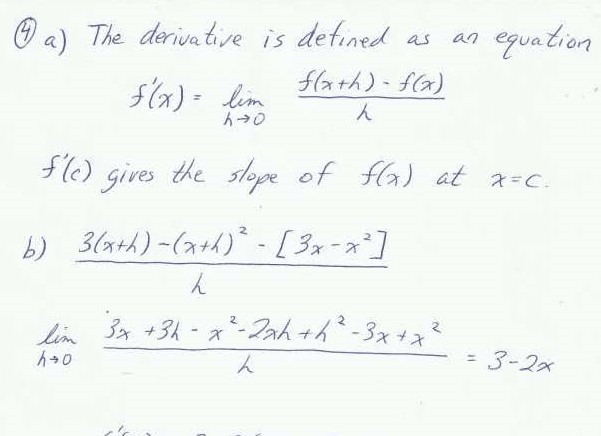 ④ a) The derivative is defined as an equation
f'(x) = lim h→0 f(x+h) - f(x) / h
f'(c) gives the slope of f(x) at x=c.
b) 3(x+h) - (x+h)² - [3x - x²] / h
lim h→0 3x + 3h - x² - 2xh + h² - 3x + x² / h = 3 - 2x